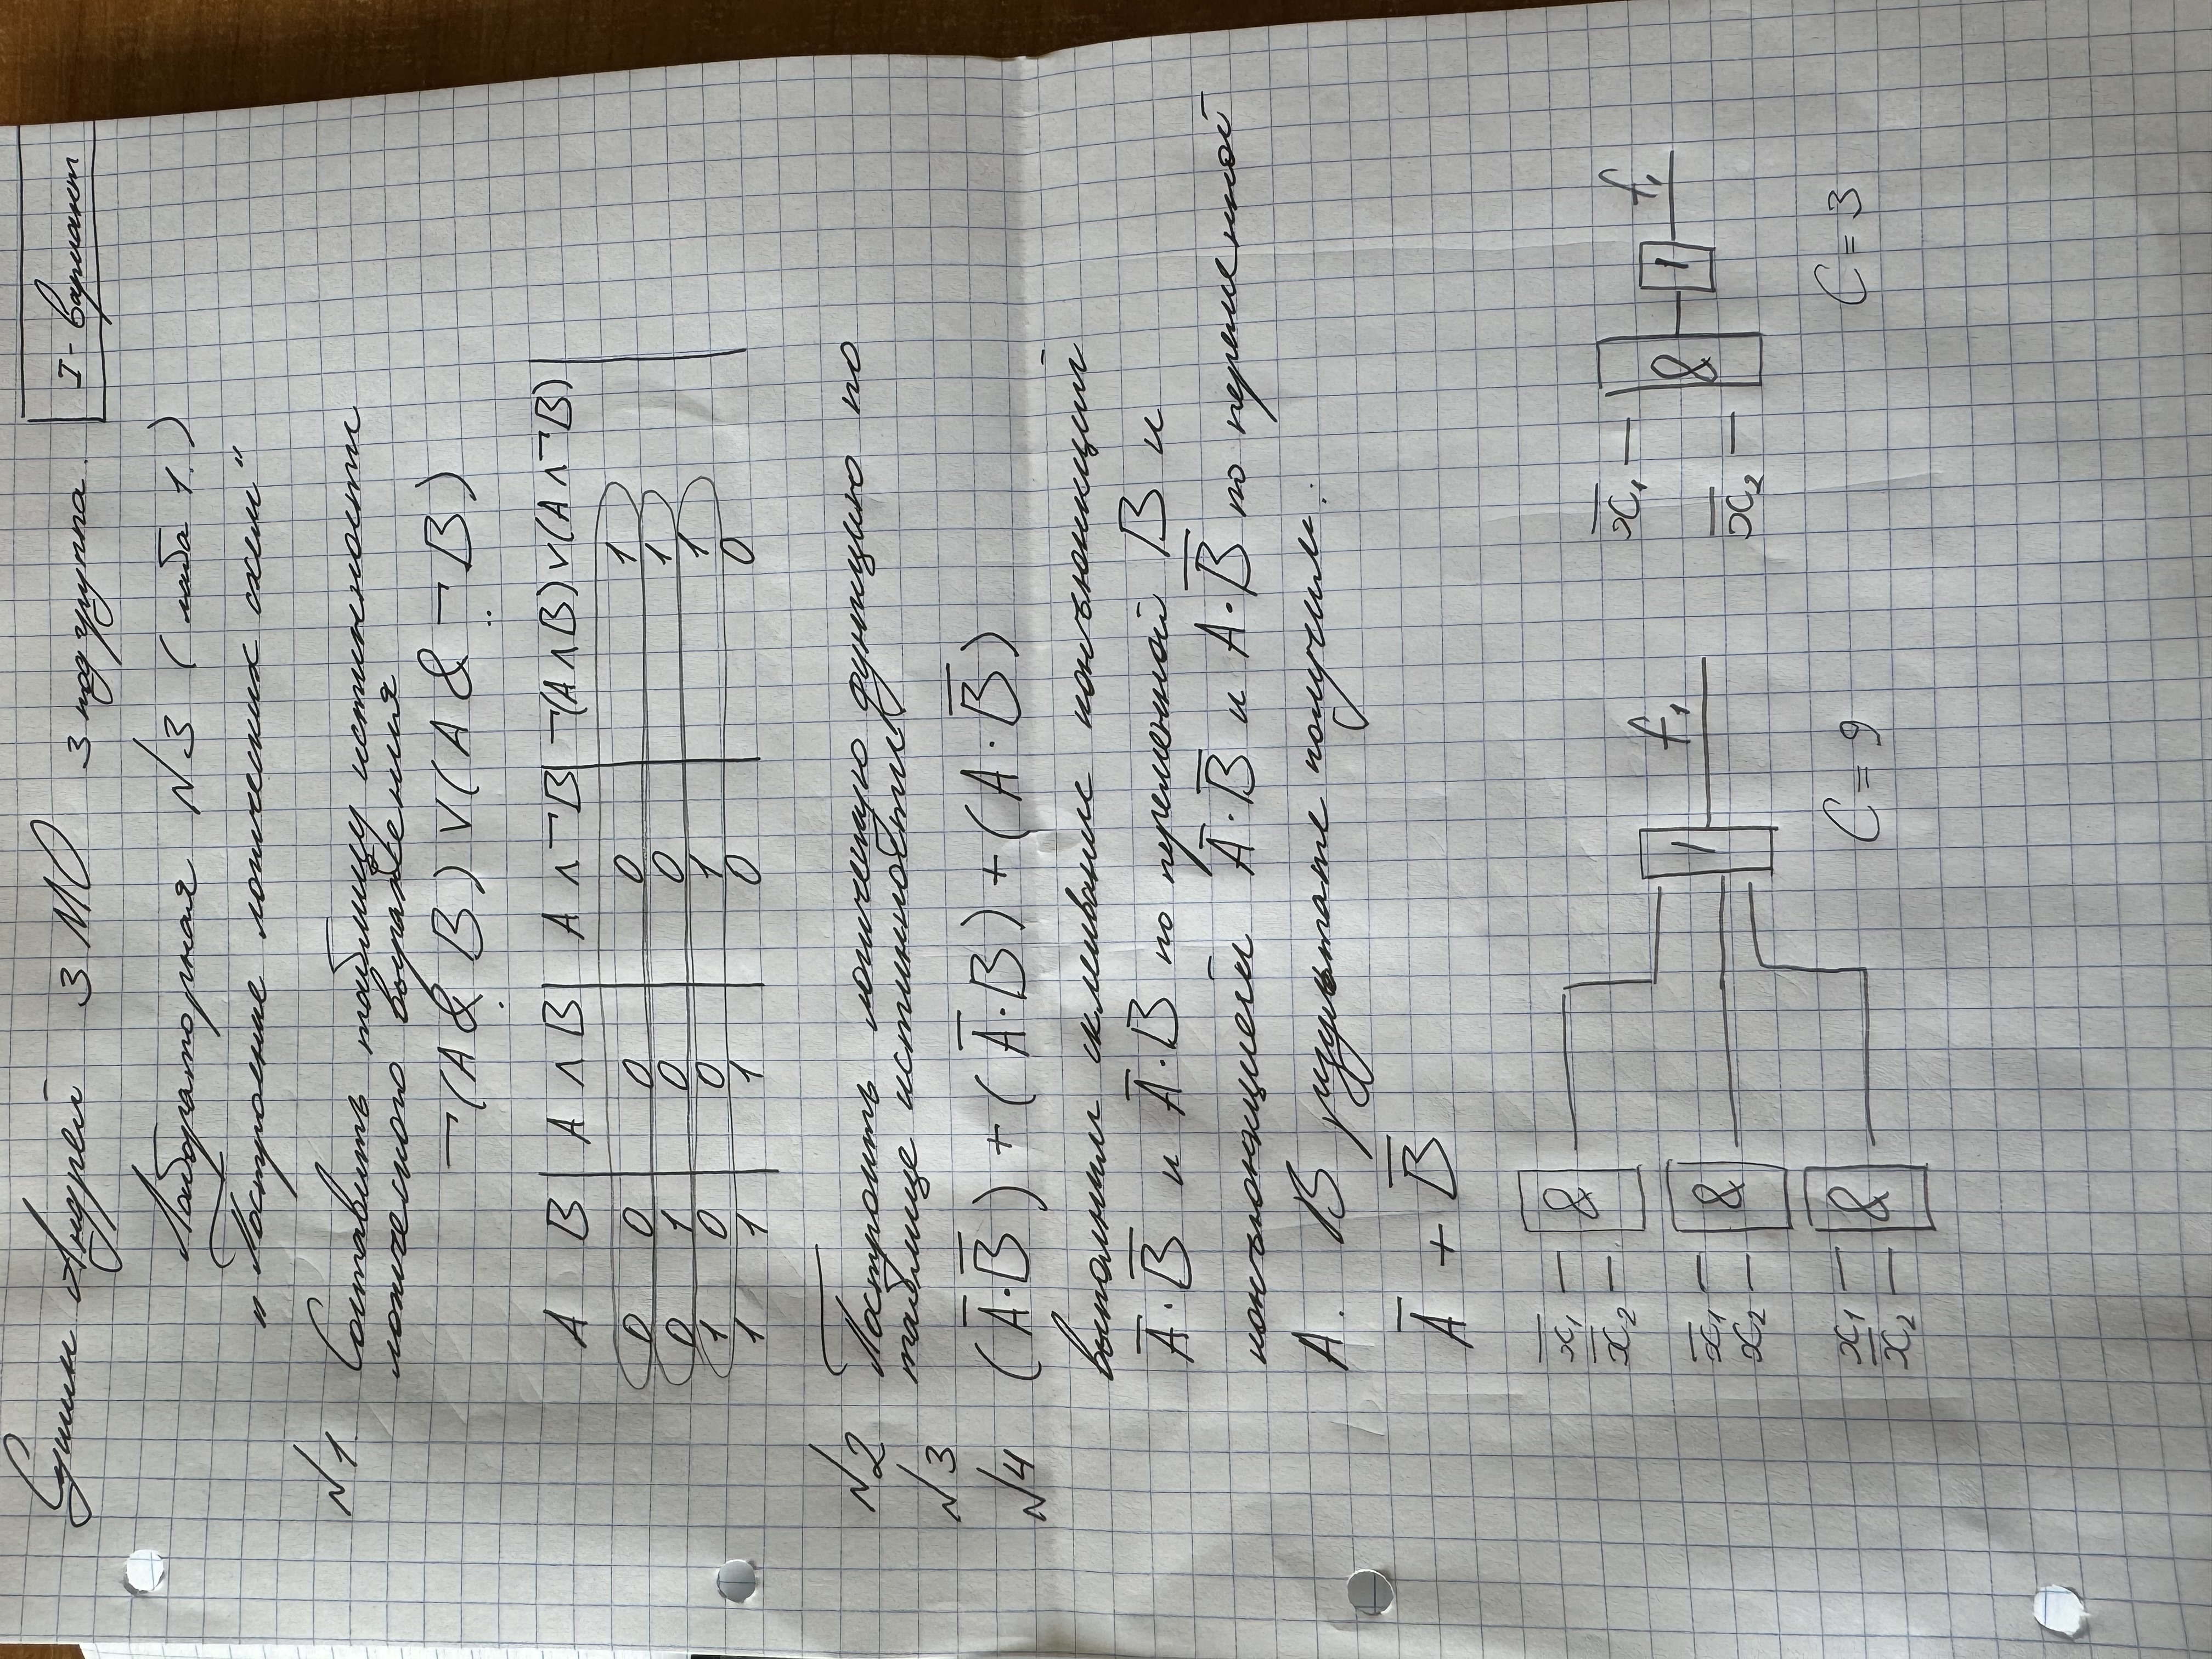 Сушин Андрей 3 МО 3 подгруппа. I - вариант
Лабораторная №3 (лаба 1.)
„Построение логических схем"
№1. Составить таблицу истинности
логического выражения
¬(A & B) ∨ (A & ¬B)
A B | A ∧ B | A ∧ ¬B | ¬(A ∧ B) ∨ (A ∧ ¬B) |
0 0 | 0 | 0 | 1
0 1 | 0 | 0 | 1
1 0 | 0 | 1 | 1
1 1 | 1 | 0 | 0
№2 Построить логическую функцию по
таблице истинности
№3
№4 (A̅·B̅) + (A̅·B) + (A·B̅)
выполним склеивание конъюнкций
A̅·B̅ и A̅·B по переменной B и
конъюнкцией A̅·B̅ и A·B̅ по переменной
A. В результате получим:
A̅ + B̅
x̅₁ &
x̅₂
x̅₁ &
x₂
x₁ &
x̅₂
1 f₁
C = 9
x̅₁
x̅₂
& 1 f₁
C = 3